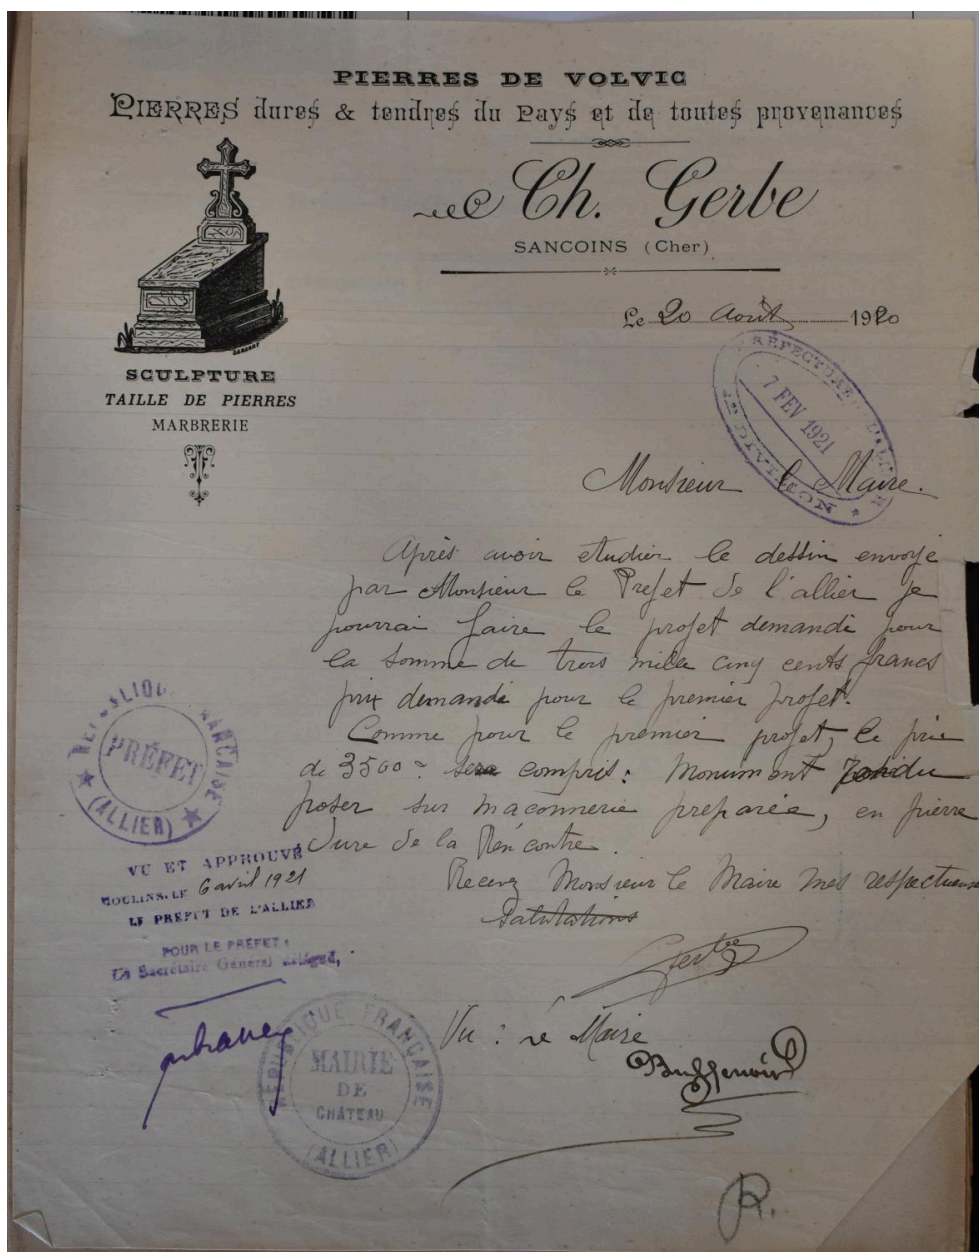 PIERRES DE VOLVIC
PIERRES dures & tendres du Pays et de toutes provenances
Ch. Gerbe
SANCOINS (Cher)
Le 20 Août 1920
SCULPTURE
TAILLE DE PIERRES
MARBRERIE
PRÉFECTURE DE L'ALLIER
7 FEV 1921
DIVISION
Monsieur le Maire.
Après avoir etudier le dessin envoyé
par Monsieur le Prefet de l'allier je
pourrai faire le projet demandé pour
la somme de trois mille cinq cents francs
prix demandé pour le premier projet.
Comme pour le premier projet, le prix
de 3500 sera compris : Monument rendu
poser sur maconnerie preparée, en pierre
dure de la Rencontre.
Recevez Monsieur le Maire mes respectueuses
Salutations
Gerbe
RÉPUBLIQUE FRANÇAISE
PRÉFET
(ALLIER)
VU ET APPROUVÉ
MOULINS, LE 6 avril 1921
LE PREFET DE L'ALLIER
POUR LE PRÉFET :
Le Secrétaire Général délégué,
Vu : le Maire
RÉPUBLIQUE FRANÇAISE
MAIRIE
DE
CHÂTEAU
(ALLIER)
R.